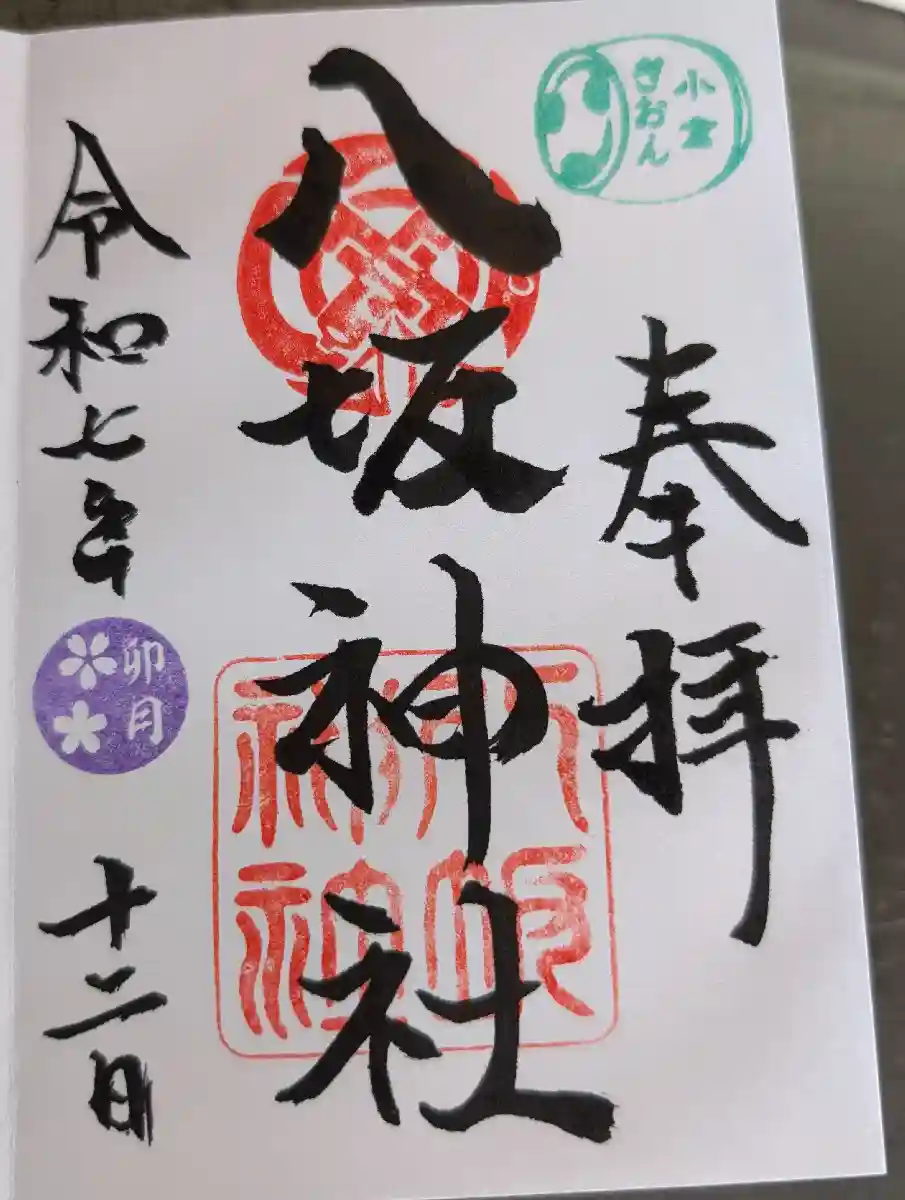 小倉
ぎおん
奉拝
八坂神社
令和七年
卯月
十二日